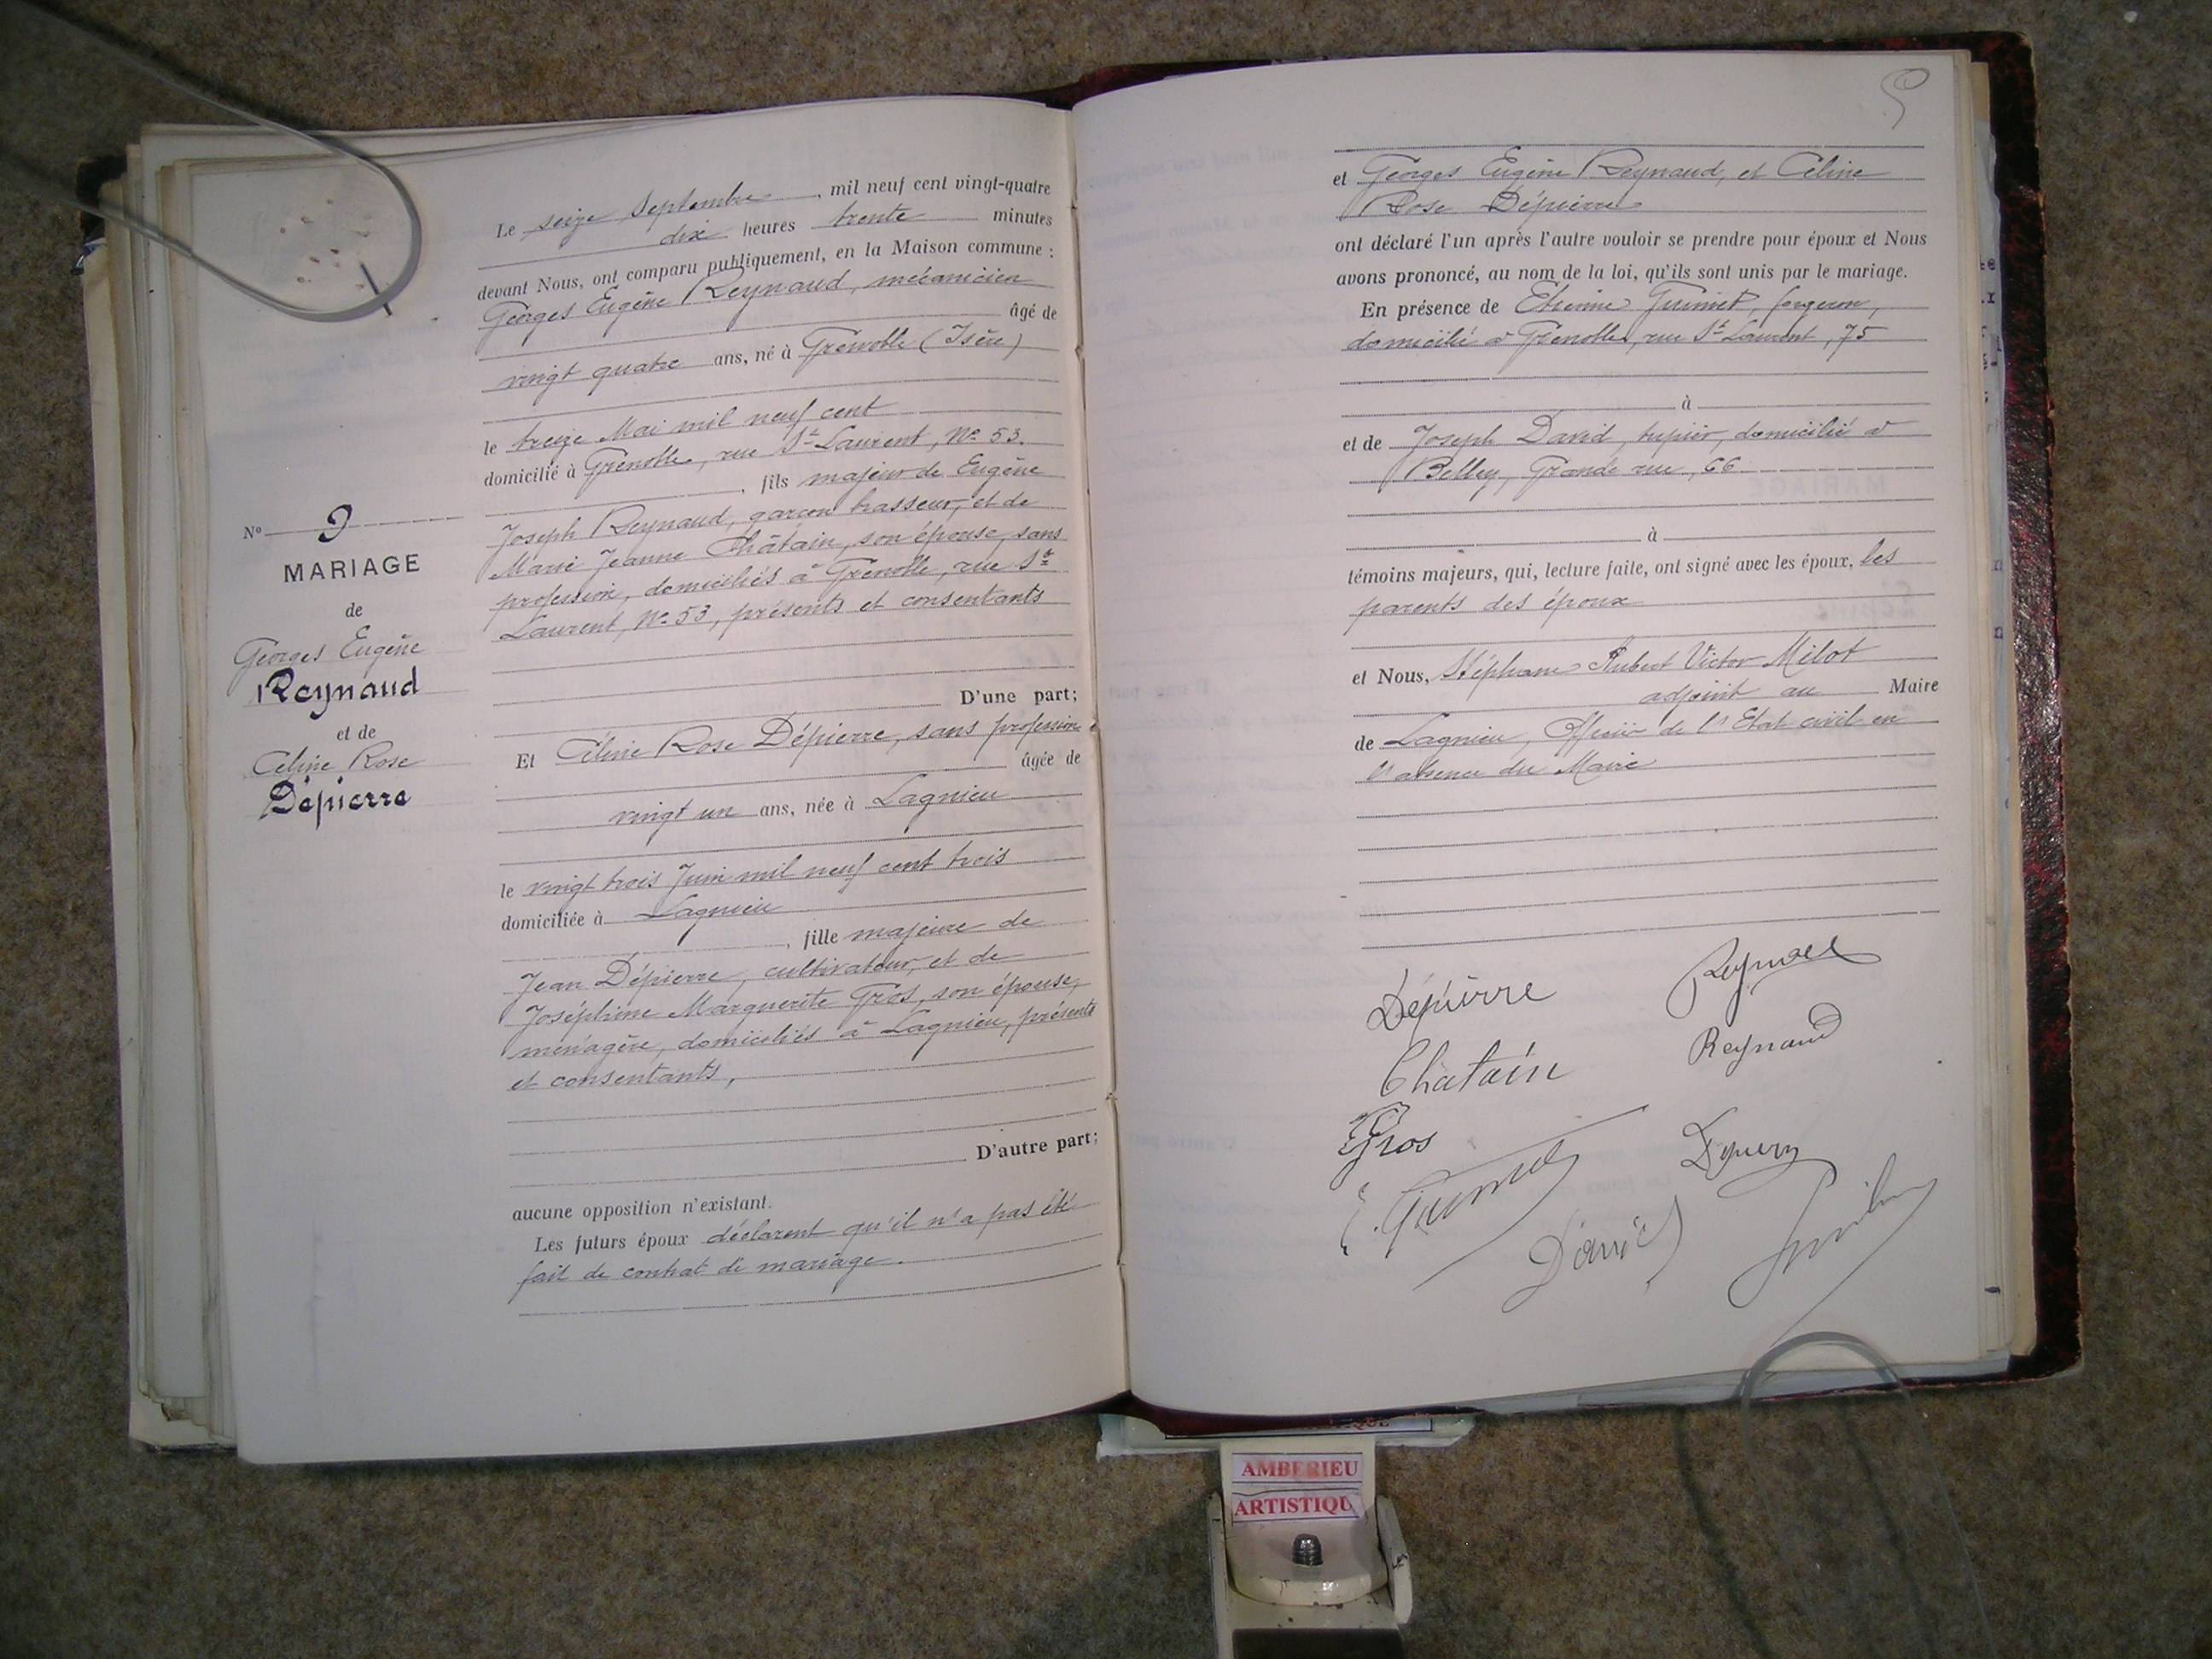 Le seize Septembre, mil neuf cent vingt-quatre
dix heures trente minutes
devant Nous, ont comparu publiquement, en la Maison commune :
Georges Eugène Reynaud, mécanicien
âgé de
vingt quatre ans, né à Grenoble (Isère)
le treize Mai mil neuf cent
domicilié à Grenoble, rue St Laurent, No 53.
, fils majeur de Eugène
Joseph Reynaud, garçon brasseur, et de
Marie Jeanne Châtain, son épouse, sans
profession, domiciliés à Grenoble, rue St
Laurent, No 53, présents et consentants
D'une part;
No 9
MARIAGE
de
Georges Eugène
Reynaud
et de
Céline Rose
Dépierre
Et Céline Rose Dépierre, sans profession
âgée de
vingt un ans, née à Lagnieu
le vingt trois Juin mil neuf cent trois
domiciliée à Lagnieu
, fille majeure de
Jean Dépierre, cultivateur, et de
Joséphine Marguerite Gros, son épouse,
ménagère, domiciliés à Lagnieu, présents
et consentants,
D'autre part;
aucune opposition n'existant.
Les futurs époux déclarent qu'il n'a pas été
fait de contrat de mariage.
9
et Georges Eugène Reynaud, et Céline
Rose Dépierre
ont déclaré l'un après l'autre vouloir se prendre pour époux et Nous
avons prononcé, au nom de la loi, qu'ils sont unis par le mariage.
En présence de Etienne forgeron,
domicilié à Grenoble, rue St Laurent, 75
à
et de Joseph David, domicilié à
Belley, Grande rue, 66
à
témoins majeurs, qui, lecture faite, ont signé avec les époux, les
parents des époux
et Nous, Stéphane Victor Milot
adjoint au Maire
de Lagnieu, Officier de l'Etat civil en
l'absence du Maire
Dépierre
Reynaud
Chatain
Reynaud
Gros
David
AMBERIEU
ARTISTIQU